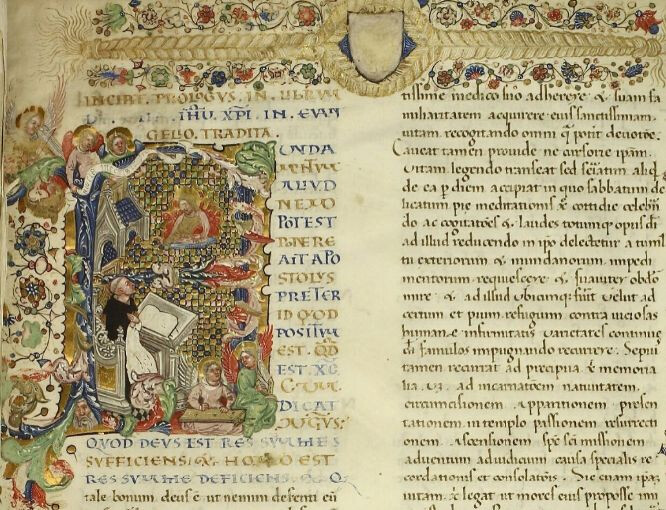 INCIPIT. PROLOGVS. IN. LIBRVM
IHU. XPI. IN. EVAN
GELIO. TRADITA.
UNDA
MENTVM
ALIVD
NEMO
POTEST
PONERE
AIT APO
STOLVS
PRETER
ID QVOD
POSITVM
EST. QD
EST. XC
DICAT
QVOD DEVS EST RES SVMME S
SVFFICIENS. & HOMO EST
RES SVMME DEFICIENS. & Q
tale bonum deus e ut nemini
tissime medico suo adherere & suam fa
miliaritatem acquirere eius sanctissimam
uitam recogitando omni q potit deuotōe.
Caueat tamen prouide ne cursorie ipam
Vitam legendo transeat sed seriatim aliqd
de ea p diem accipiat in quo sabbatum de
licatum pie meditationis & cottidie celebrādo
do ac cogitatōes & laudes totumq opus diei
ad illud reducendo in ipo delectetur a tumul
tu exteriorum & mundanorum impedi
mentorum requiescere & suauiter obdor
mire & ad illud ubicumq fuit uelut ad
certum et pium refugium contra uiciosas
humane infirmitatis uarietates continue
dei famulos impugnando recurere. Sepius
tamen recurrat ad precipua memoria
lia ad incarnatōem natiuitatem
circumcisionem apparitionem presen
tationem in templo passionem resurrecti
onem ascensionem spe sci missionem
aduentum ad iudicium causa specialis re
cordationis et consolatōis. Sic etiam ipam
uitam legat ut mores eius proposse imi